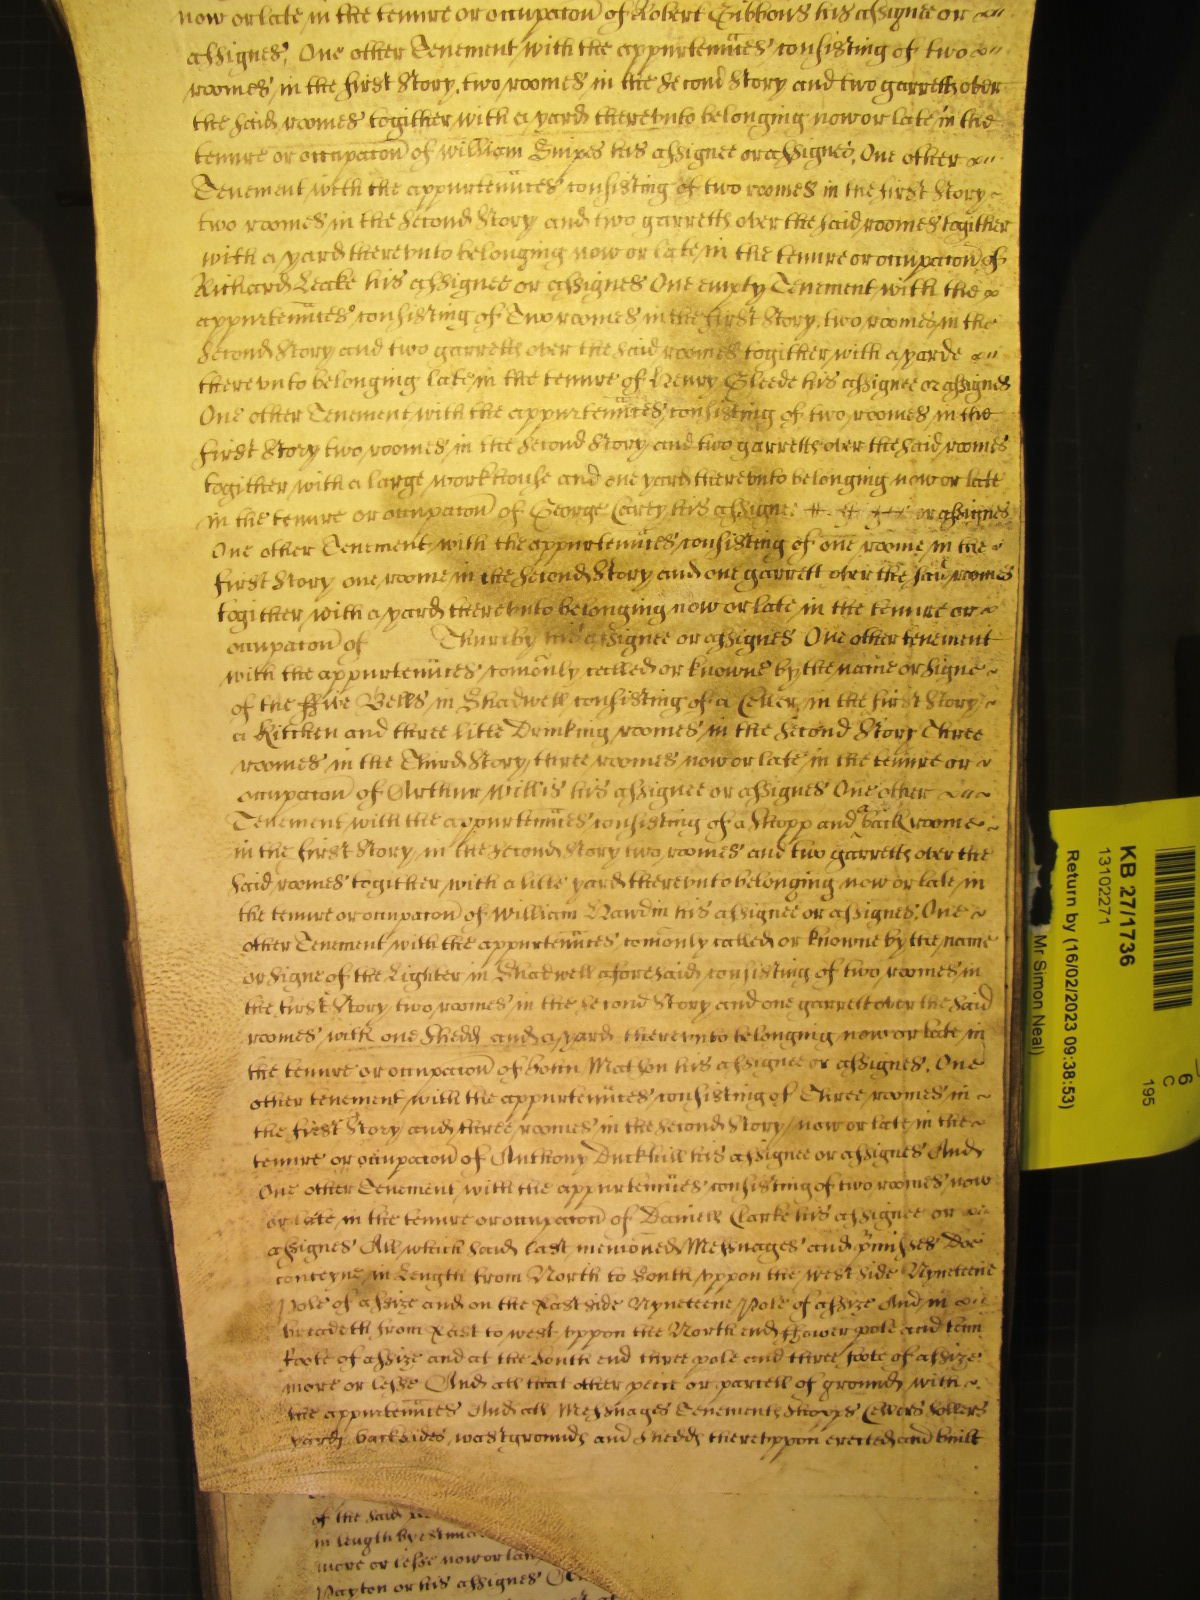 now or late in the tenure or occupacon of Robert Gibbons his assignee or
assignes, One other Tenement with the appurtennces consisting of two
roomes in the first Story, two roomes in the second Story and two garretts over
the said roomes togither with a yard therevnto belonging now or late in the
tenure or occupacon of William Snipes his assignee or assignes, One other
Tenement with the appurtennces consisting of two roomes in the first Story
two roomes in the Second Story and two garretts over the said roomes togither
with a yard therevnto belonging now or late in the tenure or occupacon of
Richard Leake his assignee or assignes One empty Tenement with the
appurtennces consisting of Two roomes in the first Story, two roomes in the
Second Story and two garretts over the said roomes togither with a yarde
therevnto belonging late in the tenure of Henry Sleede his assignee or assignes
One other Tenement with the appurtennces consisting of two roomes in the
first Story two roomes in the Second Story and two garretts over the said roomes
togither with a large workhouse and one yard therevnto belonging now or late
in the tenure or occupacon of George Carty his assignee or assignes
One other Tenement with the appurtennces consisting of one roome in the
first Story one roome in the Second Story and one garrett over the said roomes
togither with a yard therevnto belonging now or late in the tenure or
occupacon of Thuriby his assignee or assignes One other tenement
with the appurtennces comonly called or knowne by the name or signe
of the ffive Bells in Shadwell consisting of a Celler in the first Story
a Kitchen and three litte Drinking roomes in the Second Story Three
roomes in the Third Story three roomes now or late in the tenure or
occupacon of Arthur Willis his assignee or assignes One other
Tenement with the appurtennces consisting of a Shopp and a back roome
in the first Story, in the Second Story two roomes and two garretts over the
said roomes togither with a litle yard therevnto belonging now or late in
the tenure or occupacon of William Nawdin his assignee or assignes, One
other Tenement with the appurtennces comonly called or knowne by the name
or signe of the Lighter in Shadwell aforesaid consisting of two roomes in
the first Story two roomes in the Second Story and one garrett over the said
roomes with one Shedd and a yard therevnto belonging now or late in
the tenure or occupacon of John Matson his assignee or assignes, One
other tenement with the appurtennces consisting of Three roomes in
the first Story and three roomes in the second Story now or late in the
tenure or occupacon of Anthony Duckhill his assignee or assignes And
One other Tenement with the appurtennces consisting of two roomes now
or late in the tenure or occupacon of Daniell Clarke his assignee or
assignes All which said last mencioned Messuages and pmisses Doe
conteyne in Length from North to South vppon the west side Nyneteene
Pole of assize and on the East side Nyneteene Pole of assize And in
breadeth from East to west vppon the North end ffower pole and tenn
foote of assize and at the South end three pole and three foote of assize
more or lesse And all that other peice or parcell of ground with
the appurtennces And all Messuages Tenements Shopps Cellers Sollers
yards backsides wast grounds and Shedds therevppon erected and built
of the said
in length by estima
more or lesse now or late
Payton or his assignes
KB 27/1736
13102271
Return by (16/02/2023 09:38:53)
Mr Simon Neal
6
C
195